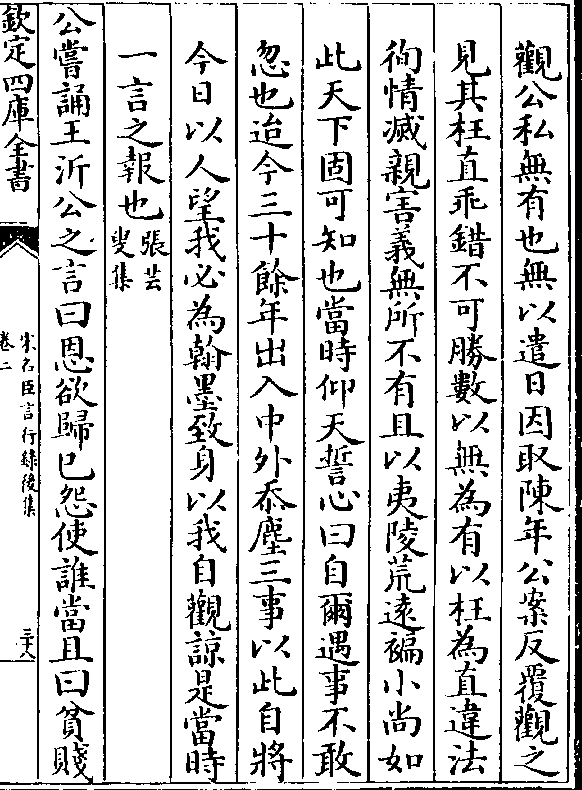 觀公私無有也無以遣日因取陳年公案反覆觀之
見其枉直乖錯不可勝數以無為有以枉為直違法
徇情滅親害義無所不有且以夷陵荒遠褊小尚如
此天下固可知也當時仰天誓心曰自爾遇事不敢
忽也迨今三十餘年出入中外忝塵三事以此自將
今日以人望我必為翰墨致身以我自觀諒是當時
一言之報也張芸
叟集
公嘗誦王沂公之言曰恩欲歸已怨使誰當且曰貧賤
欽定四庫全書
宋名臣言行錄後集
卷二
三十八